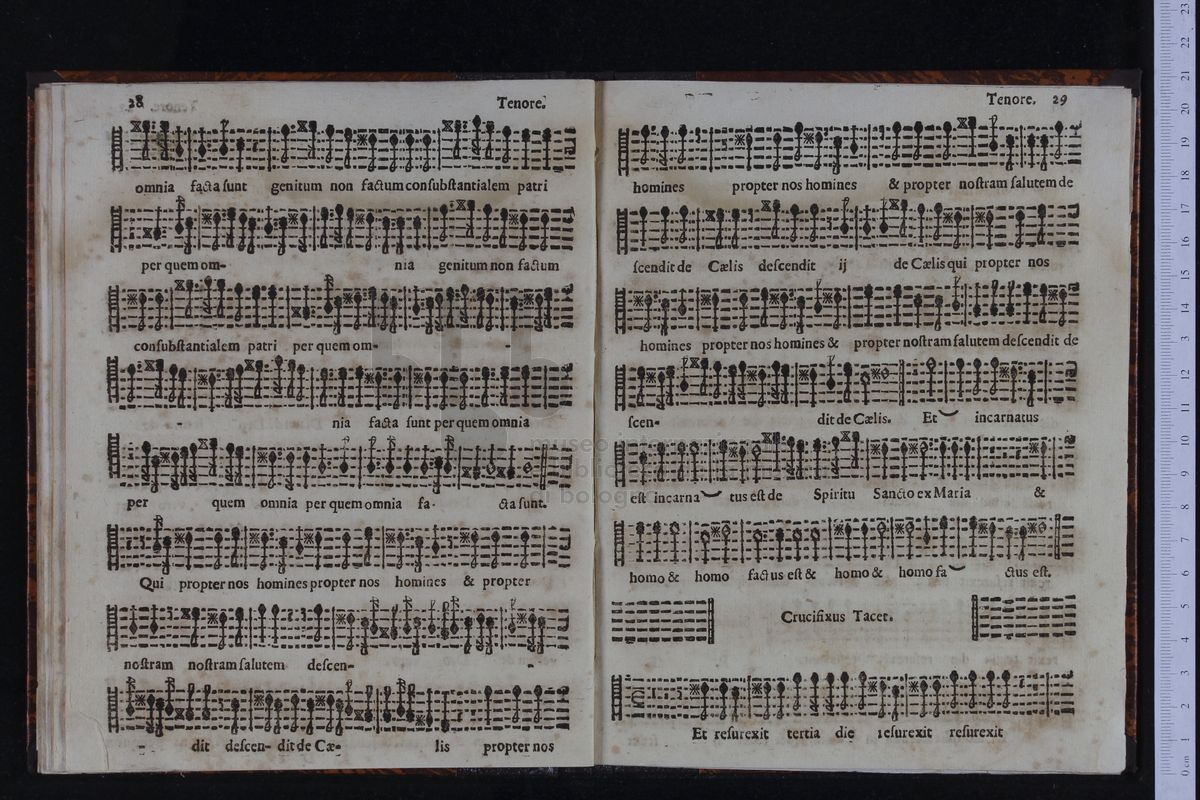 28 Tenore.
omnia facta sunt genitum non factum consubstantialem patri
per quem om- nia genitum non factum
consubstantialem patri per quem om- -
- nia facta sunt per quem omnia
per quem omnia per quem omnia fa- cta sunt.
Qui propter nos homines propter nos homines & propter
nostram nostram salutem descen- -
- dit descen- dit de Cæ- lis propter nos
Tenore. 29
homines propter nos homines & propter nostram salutem de
scendit de Cælis descendit ij de Cælis qui propter nos
homines propter nos homines & propter nostram salutem descendit de
scen- dit de Cælis. Et incarnatus
est incarna tus est de Spiritu Sancto ex Maria &
homo & homo factus est & homo & homo fa ctus est.
Crucifixus Tacet.
Et resurexit tertia die resurexit resurexit